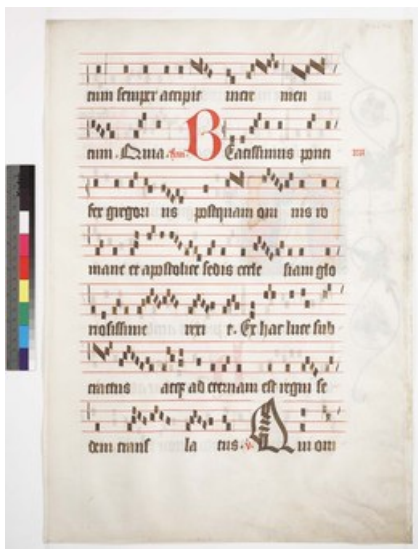 tum semper accipit incre men
tum. Quia. Beatissimus ponti
fex gregori us postquam om nis ro
mane et apostolice sedis eccle siam glo
riosissime rexi t. Ex hac luce sub
atqꝫ ad eternam est regni se
dem trans la tus. V. Qui om